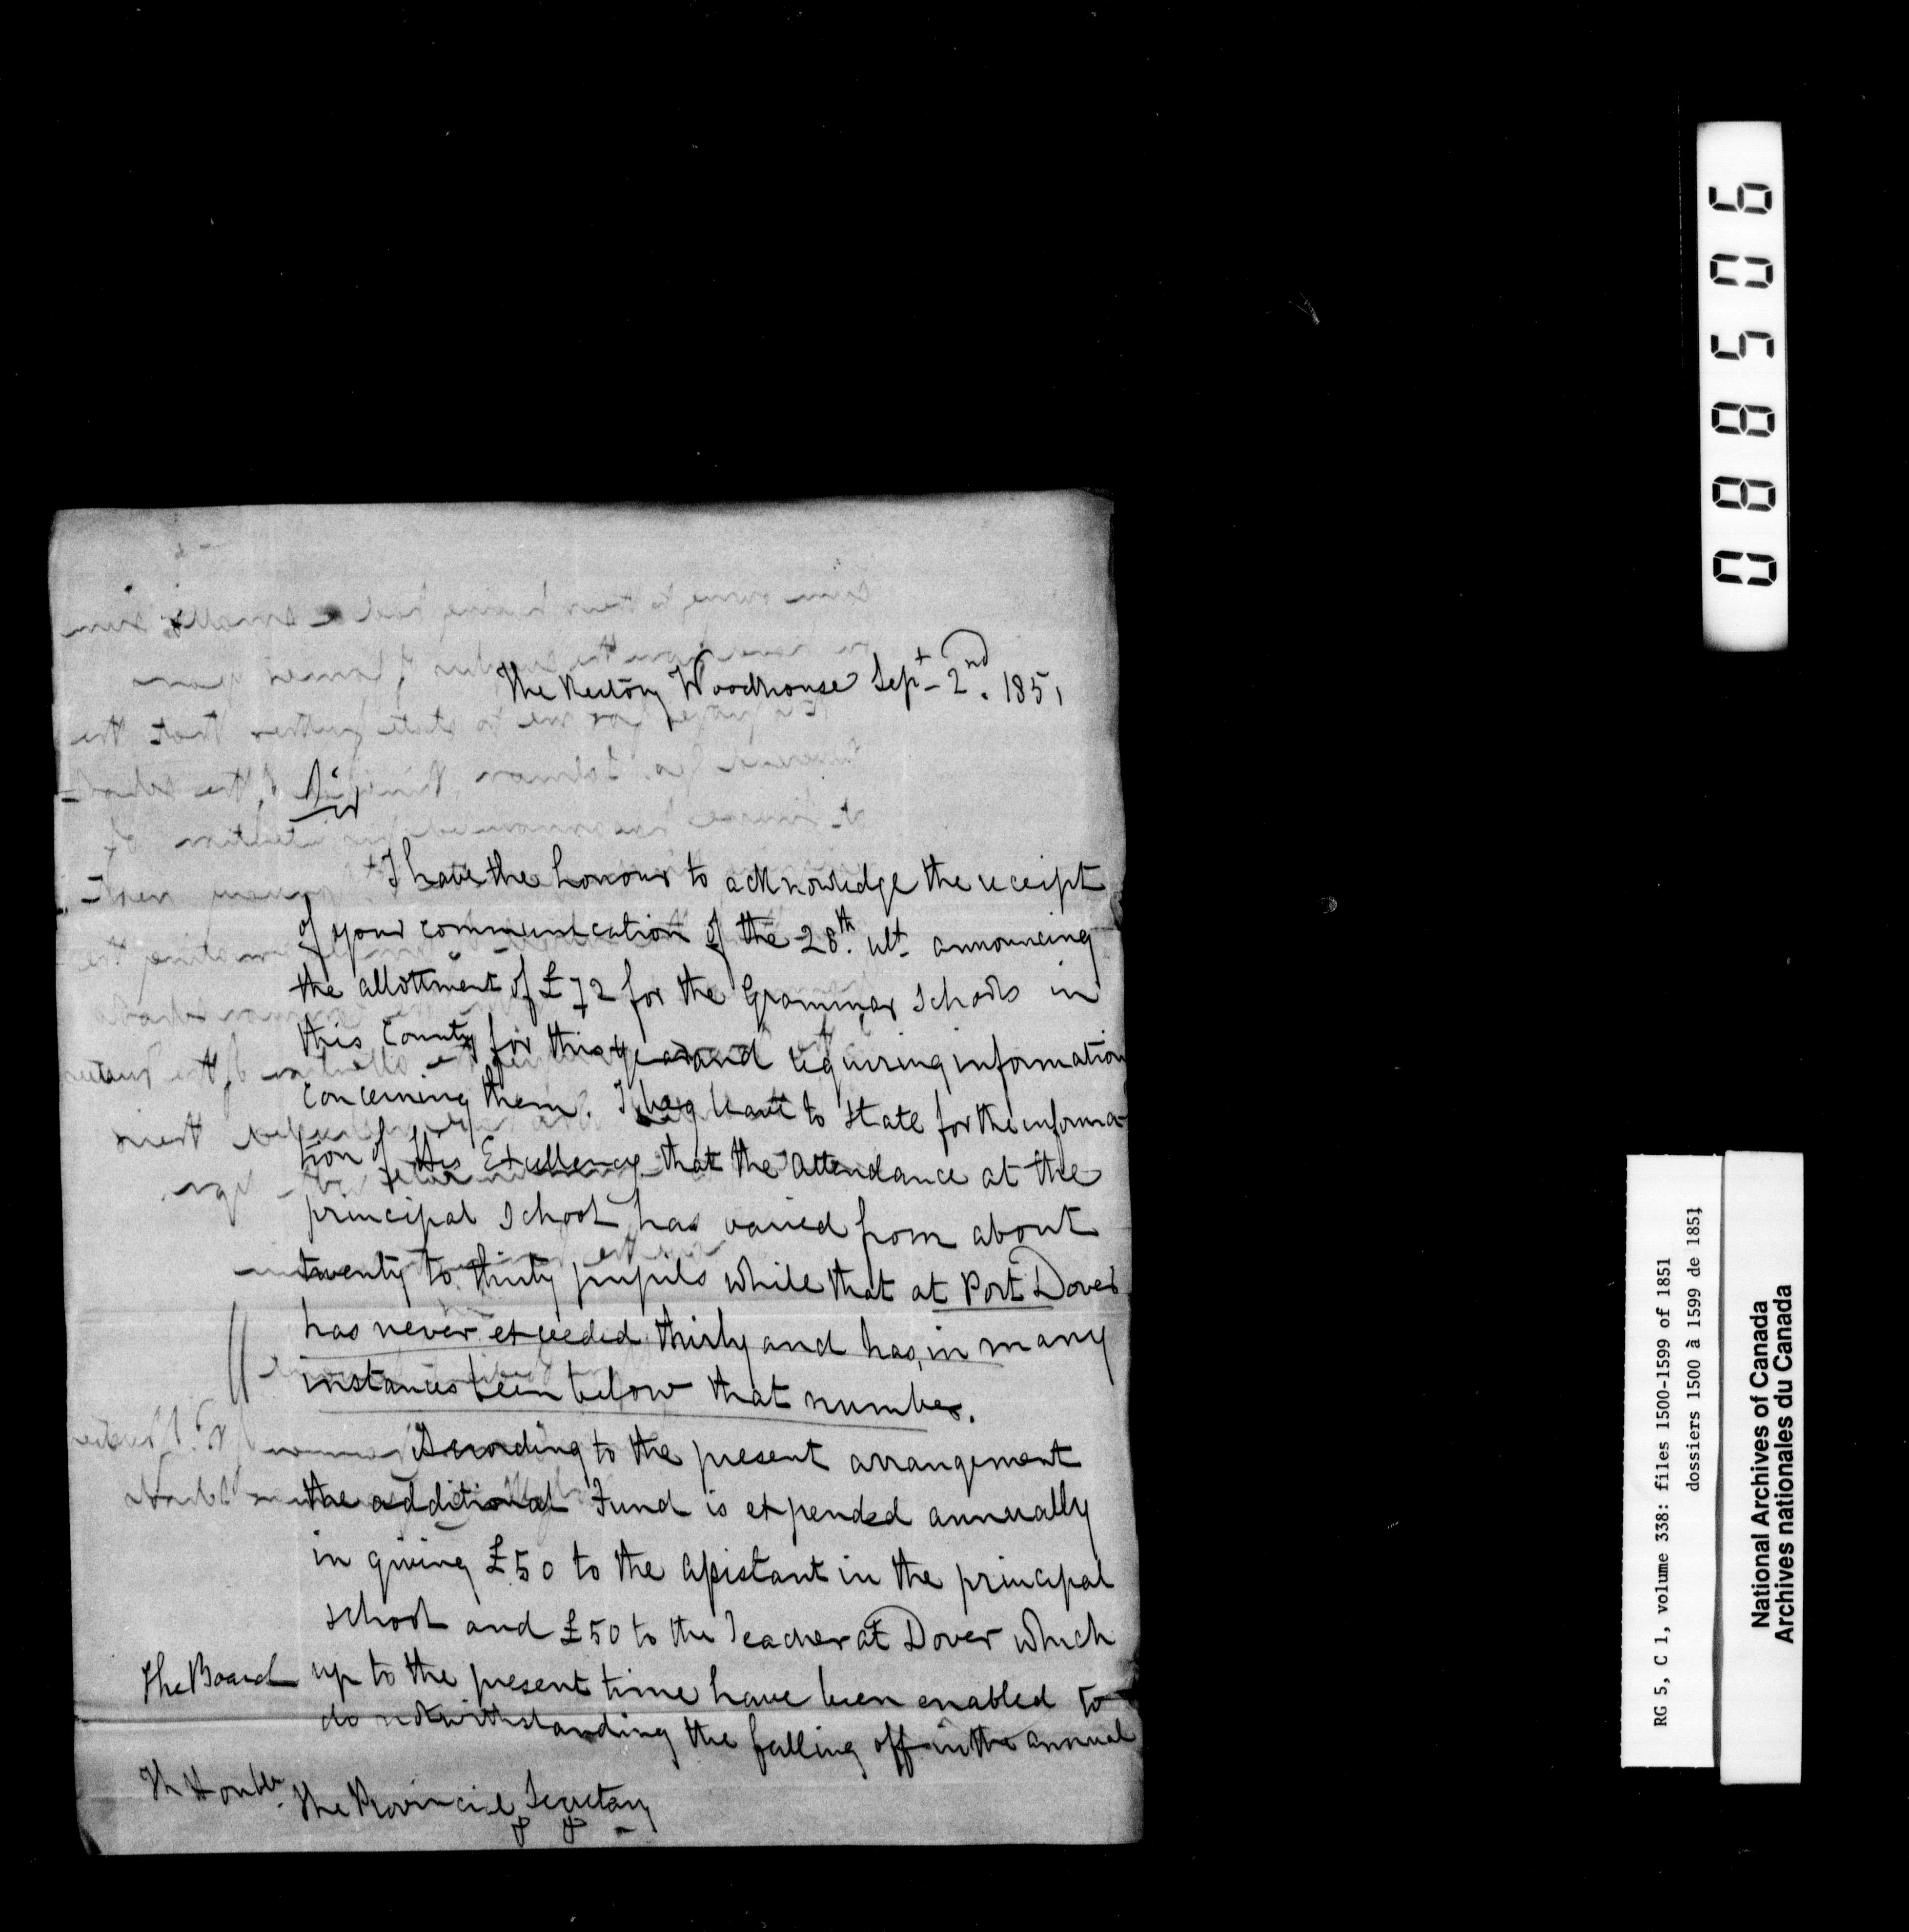 The Rectory Woodhouse Sept 2nd. 1851
Sir
I have the honour to acknowledge the receipt
of your communication of the 28th. ult. announcing
the allottment of £72 for the Grammar Schools in
this County for this year and requiring information
concerning them. I beg leave to state for the informa-
tion of His Excellency that the attendance at the
principal School has varied from about
twenty to thirty pupils while that at Port Dover
has never exceeded thirty and has, in many
instances been below that number.
According to the present arrangement
the additional Fund is expended annually
in giving £50 to the Assistant in the principal
school and £50 to the Teacher at Dover which
The Board up to the present time have been enabled to
do notwithstanding the falling off in the annual
Th Honble. The Provincial Secretary
088506
RG 5, C 1, volume 338: files 1500-1599 of 1851
dossiers 1500 à 1599 de 1851
National Archives of Canada
Archives nationales du Canada